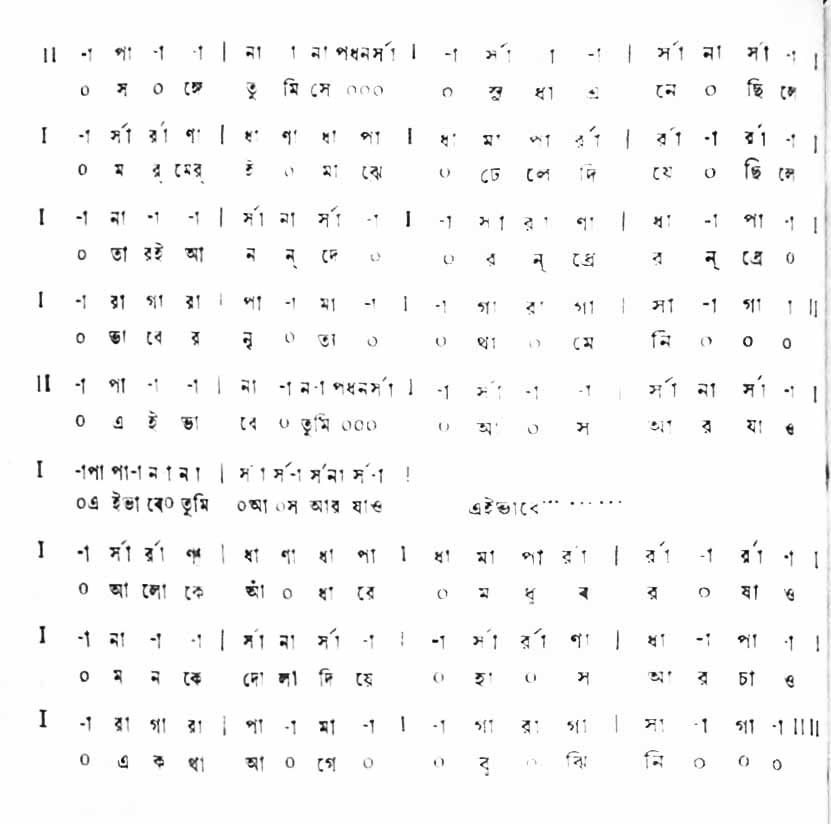 II -া পা -া -া | না া না পধনর্সা I -া র্সা া -া | র্সা না র্সা -া I
০ স ০ ঙ্গে তু মি সে ০০০ ০ সু ধা এ নে ০ ছি লে
I -া র্সা র্রা ণা | ধা ণা ধা পা I ধা মা পা র্রা | র্রা -া র্রা -া I
০ ম র্ মের্ ই ০ মা ঝে ০ ঢে লে দি য়ে ০ ছি লে
I -া না -া -া | র্সা না র্সা -া I -া র্সা র্রা ণা | ধা -া পা -া I
০ তা রই আ ন ন্ দে ০ ০ র ন্ ধ্রে র ন্ ধ্রে ০
I -া রা গা রা | পা -া মা -া I -া গা রা গা | সা -া গা া II
০ ভা বে র নৃ ০ তা ০ ০ থা ০ মে নি ০ ০ ০
II -া পা -া -া | না -া ন-া পধনর্সা I -া র্সা -া -া | র্সা না র্সা -া I
০ এ ই ভা বে ০ তুমি ০০০ ০ আ ০ স আ র যা ও
I -াপা পা-া না না | র্সা র্সর্-া র্সনা র্সর্-া I
০এ ইভা বে০ তুমি ০আ ০স আর যাও এইভাবে··· ··· ···
I -া র্সা র্রা ণা | ধা ণা ধা পা I ধা মা পা র্রা | র্রা -া র্রা -া I
০ আ লো কে আঁ ০ ধা রে ০ ম ধু র ব ০ ষা ও
I -া না -া -া | র্সা না র্সা -া I -া র্সা র্রা ণা | ধা -া পা -া I
০ ম ন কে দো লা দি য়ে ০ হা ০ স আ র চা ও
I -া রা গা রা | পা -া মা -া I -া গা রা গা | সা -া গা -া II II
০ এ ক থা আ ০ গে ০ ০ বু ০ ঝি নি ০ ০ ০